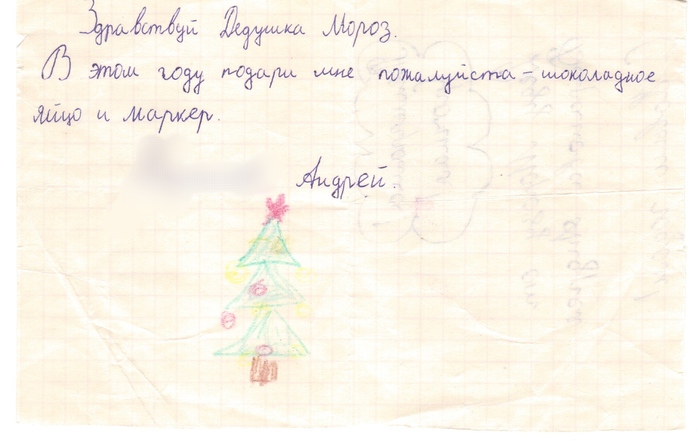 Здравствуй Дедушка Мороз.
В этом году подари мне пожалуйста – шоколадное
яйцо и маркер.
Андрей.